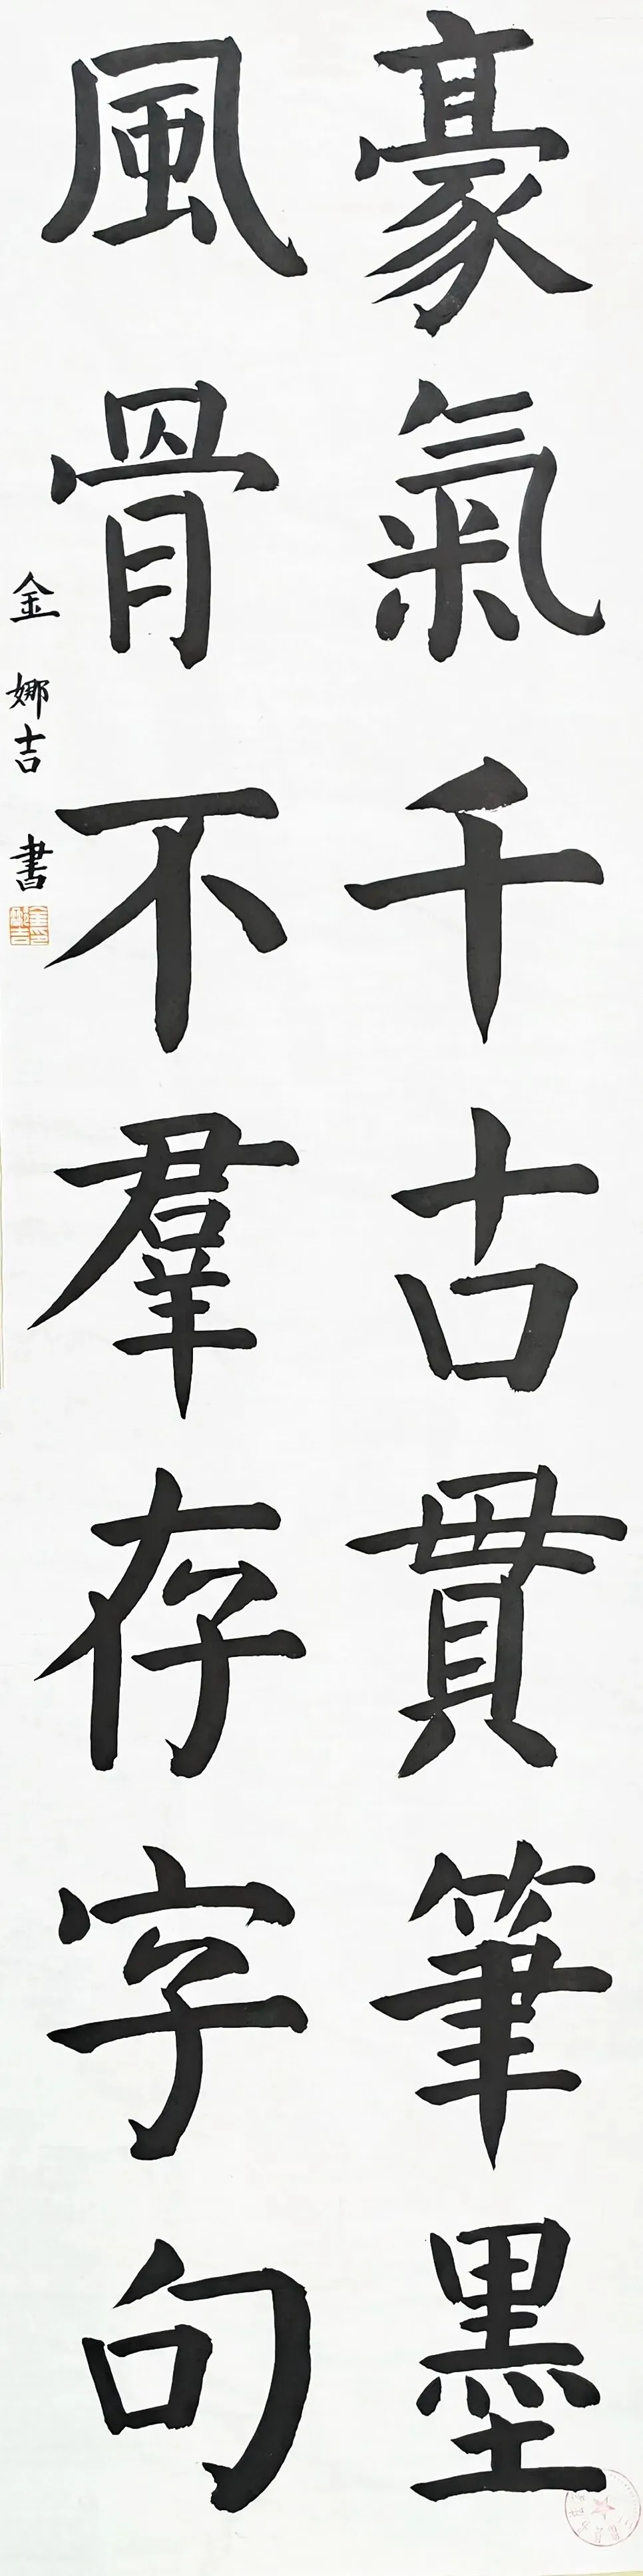 豪氣千古貫筆墨
風骨不羣存字句
金娜吉書